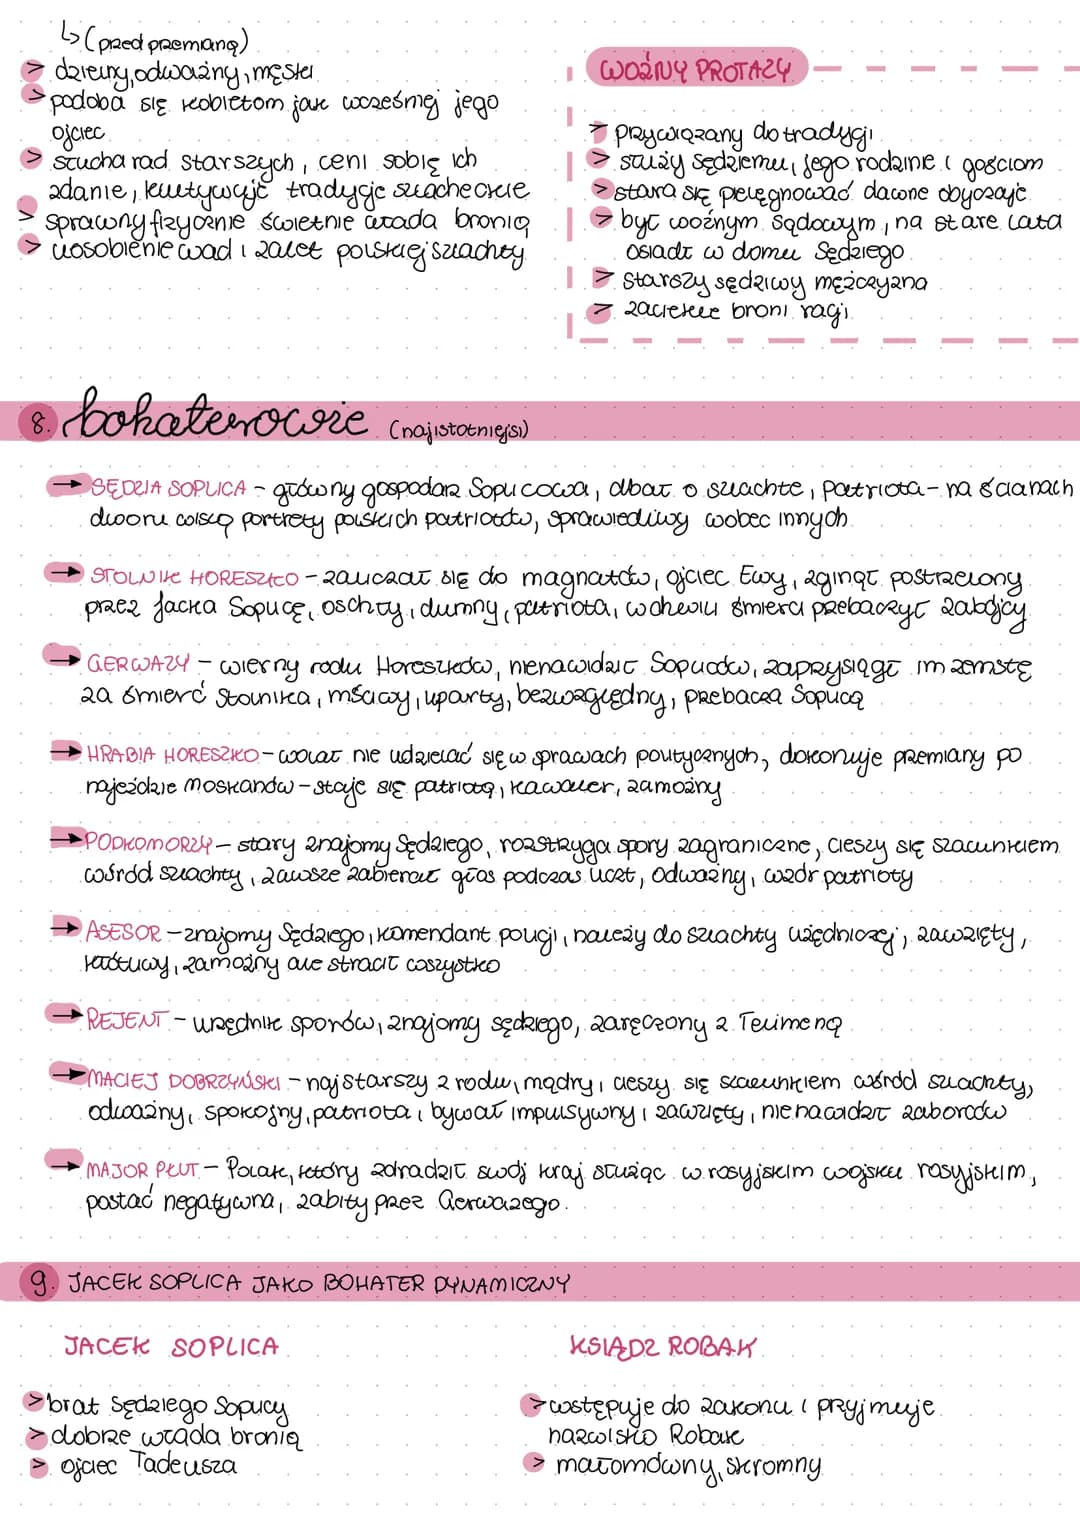 ↳(przed przemianą)
> dzielny, odważny, męski
> podoba się kobietom jak wcześniej jego
ojciec
> słucha rad starszych, ceni sobie ich
zdanie, kultywuje tradycje szlacheckie
> sprawny fizycznie świetnie włada bronią
> uosobienie wad i zalet polskiej szlachty
WOŹNY PROTAZY
> przywiązany do tradycji
> służy Sędziemu, jego rodzinie i gościom
> stara się pielęgnować dawne obyczaje
> był woźnym sądowym, na stare lata
osiadł w domu Sędziego
> starszy sędziwy mężczyzna
> zaciekle broni racji
8. bohaterowie (najistotniejsi)
→ SĘDZIA SOPLICA - główny gospodarz Soplicowa, dbał o szlachtę, patriota - na ścianach
dworu wiszą portrety polskich patriotów, sprawiedliwy wobec innych
→ STOLNIK HORESZKO - zaliczał się do magnatów, ojciec Ewy, zginął postrzelony
przez Jacka Soplicę, oschły, dumny, patriota, w chwili śmierci przebaczył zabójcy
→ GERWAZY - wierny rodu Horeszków, nienawidził Spliców, zaprzysiągł im zemstę
za śmierć Stolnika, mściwy, uparty, bezwzględny, przebacza Soplicą
→ HRABIA HORESZKO - wolał nie udzielać się w sprawach politycznych, dokonuje przemiany po
najeździe Moskalów - staje się patriotą, kawaler, zamożny
→ PODKOMORZY - stary znajomy Sędziego, rozstrzyga spory zagraniczne, cieszy się szacunkiem
wśród szlachty, zawsze zabierał głos podczas uczt, odważny, wzór patrioty
→ ASESOR - znajomy Sędziego, komendant policji, należy do szlachty urzędniczej, zawzięty,
kłótliwy, zamożny ale stracił wszystko
→ REJENT - urzędnik sporów, znajomy sędziego, zaręczony z Telimeną
→ MACIEJ DOBRZYŃSKI - najstarszy z rodu, mądry, cieszy się szacunkiem wśród szlachty,
odważny, spokojny, patriota, bywał impulsywny i zawzięty, nienawidził zaborców
→ MAJOR PŁUT - Polak, który zdradził swój kraj służąc w rosyjskim wojsku rosyjskim,
postać negatywna, zabity przez Gerwazego.
9. JACEK SOPLICA JAKO BOHATER DYNAMICZNY
JACEK SOPLICA
> brat Sędziego Soplicy
> dobrze włada bronią
> ojciec Tadeusza
KSIĄDZ ROBAK
> wstępuje do zakonu i przyjmuje
nazwisko Robak
> małomówny, skromny